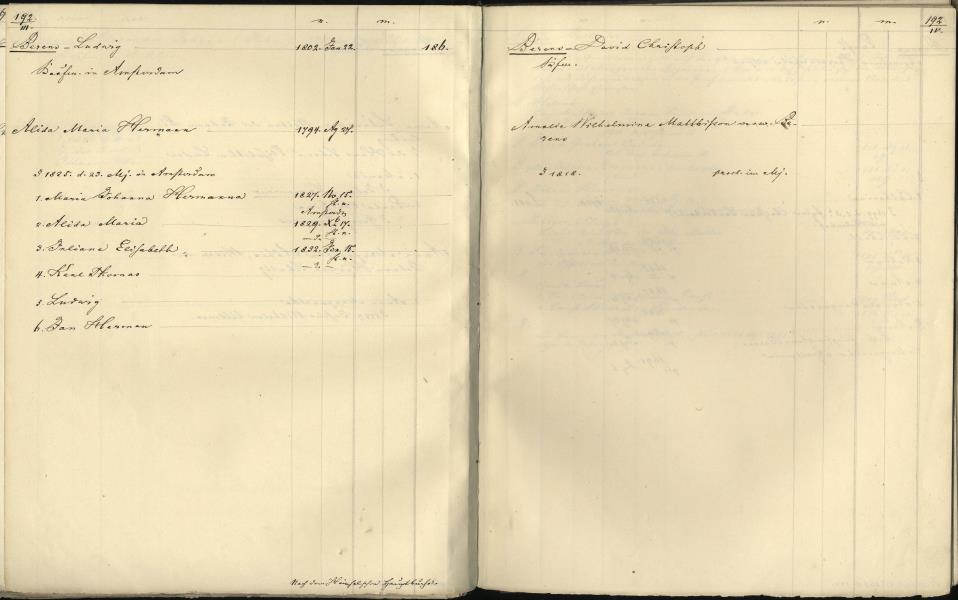 192
III.
n. m.
Berens - Ludwig 1802. Jan 22. 186.
Kaufm. in Amsterdam
Alida Maria Hermann 1794. Ag 27.
1825. d. 23. Mj. in Amsterdam
1. Maria Johanna Hermanna 1827. No. 15.
st. n.
Amsterdm
2. Alida Maria 1829. 17.
st. n.
3. Juliana Elisabeth 1832. 15.
st. n.
4. Karl Thomas
5. Ludwig
6. Jan Herman
Nach dem
n. m.
192
IV.
Berens - David Christoph
Kaufm.
Amalie Wilhelmine Matthisson verw. Be-
rens
1818. procl. im Mj.